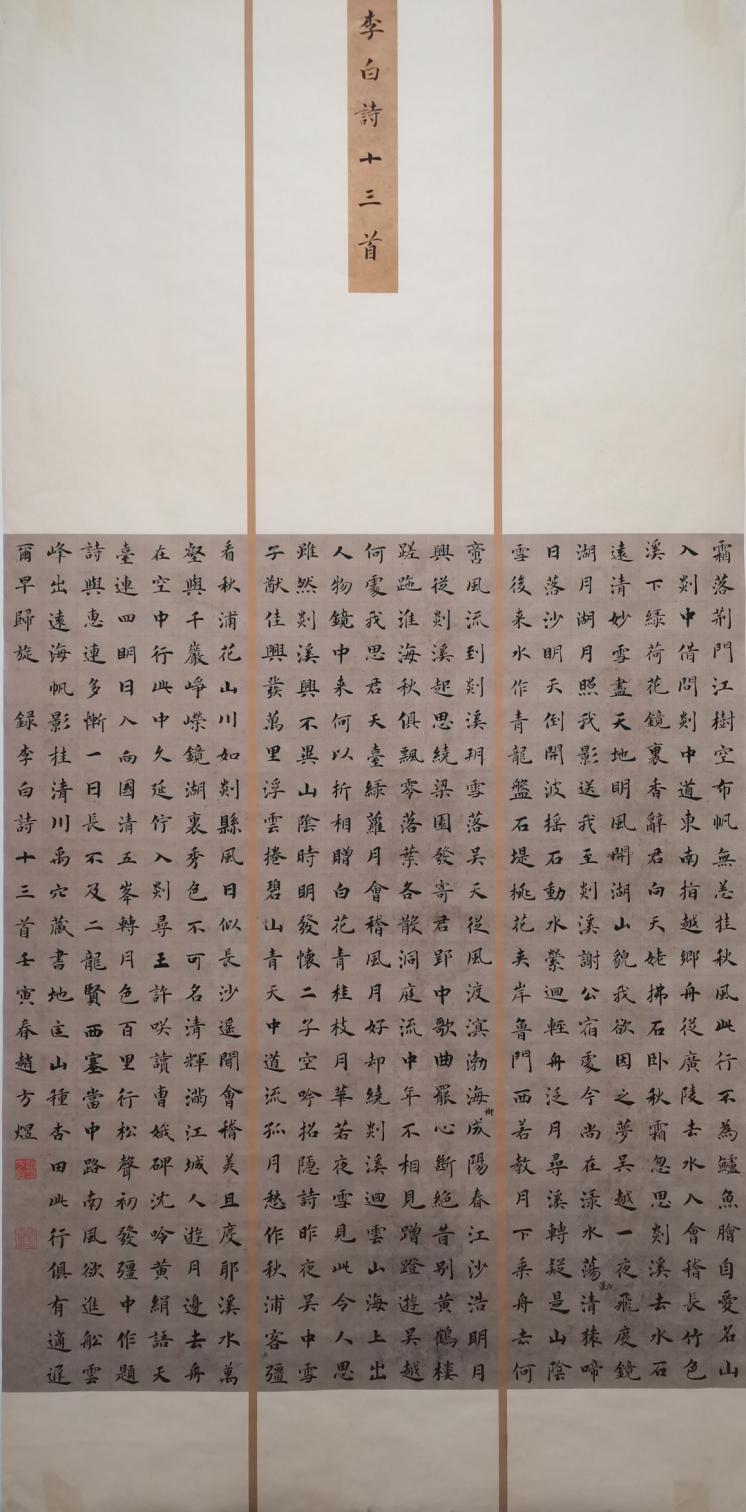 李白詩十三首
霜落荊門江樹空布帆無恙挂秋風此行不為鱸魚膾自愛名山
入剡中借問剡中道東南指越鄉舟從廣陵去水入會稽長竹色
溪下綠荷花鏡裏香辭君向天姥拂石卧秋霜忽思剡溪去水石
遠清妙雪盡天地明風開湖山貌我欲因之夢吳越一夜飛度鏡
湖月湖月照我影送我至剡溪謝公宿處今尚在淥水蕩漾清猿啼
日落沙明天倒開波摇石動水縈迴輕舟泛月尋溪轉疑是山陰
雪後来水作青龍盤石堤桃花夾岸魯門西若教月下乘舟去何
啻風流到剡溪玥雪落吳天從風渡溟渤海樹成陽春江沙浩明月
興從剡溪起思繞梁園發寄君郢中歌曲罷心斷絕昔别黃鶴樓
蹉跎淮海秋俱飄零落葉各散洞庭流中年不相見蹭蹬遊吳越
何處我思君天臺綠蘿月會稽風月好却繞剡溪迴雲山海上出
人物鏡中来何以折相贈白花青桂枝月華若夜雪見此令人思
雖然剡溪興不異山陰時明發懷二子空吟招隱詩昨夜吳中雪
子猷佳興發萬里浮雲捲碧山青天中道流孤月愁作秋浦客彊
看秋浦花山川如剡縣風日似長沙遥聞會稽美且度耶溪水萬
壑與千巖崢嶸鏡湖裏秀色不可名清輝滿江城人遊月邊去舟
在空中行此中久延佇入剡尋王許咲讀曹娥碑沈吟黃絹語天
臺連四明日入向國清五峯轉月色百里行松聲初發彊中作題
詩與惠連多慚一日長不及二龍賢西塞當中路南風欲進船雲
峰出遠海帆影挂清川禹穴藏書地匡山種杏田此行俱有適遲
爾早歸旋 錄李白詩十三首壬寅春趙方煜